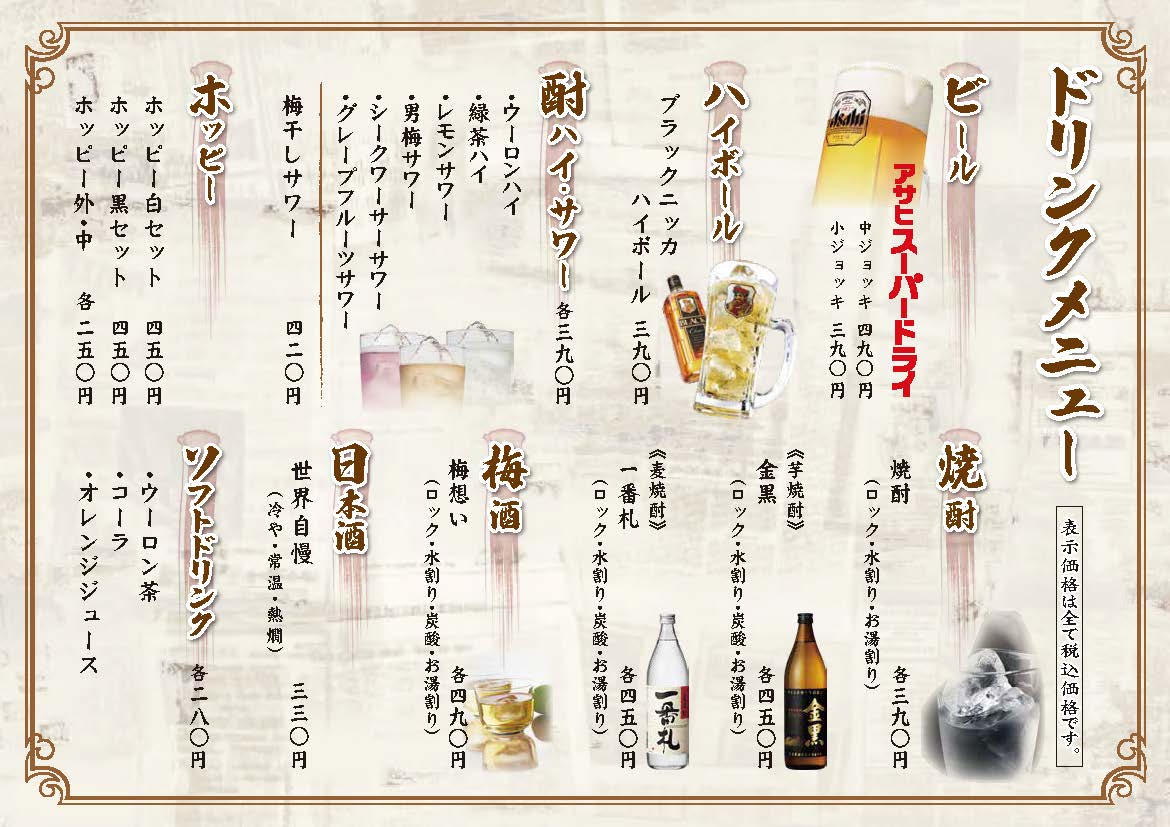 ドリンクメニュー
表示価格は全て税込価格です。
ビール
Asahi
アサヒスーパードライ
中ジョッキ 四九〇円
小ジョッキ 三九〇円
ハイボール
ブラックニッカ
ハイボール 三九〇円
BLACK
酎ハイ・サワー 各三九〇円
・ウーロンハイ
・緑茶ハイ
・レモンサワー
・男梅サワー
・シークワーサーサワー
・グレープフルーツサワー
梅干しサワー 四二〇円
ホッピー
ホッピー白セット 四五〇円
ホッピー黒セット 四五〇円
ホッピー外・中 各二五〇円
焼酎
焼酎 各三九〇円
(ロック・水割り・お湯割り)
《芋焼酎》
金黒 各四五〇円
(ロック・水割り・炭酸・お湯割り)
金黒
《麦焼酎》
一番札 各四五〇円
(ロック・水割り・炭酸・お湯割り)
一番札
梅酒
梅想い 各四九〇円
(ロック・水割り・炭酸・お湯割り)
日本酒
世界自慢 三三〇円
(冷や・常温・熱燗)
ソフトドリンク 各二八〇円
・ウーロン茶
・コーラ
・オレンジジュース